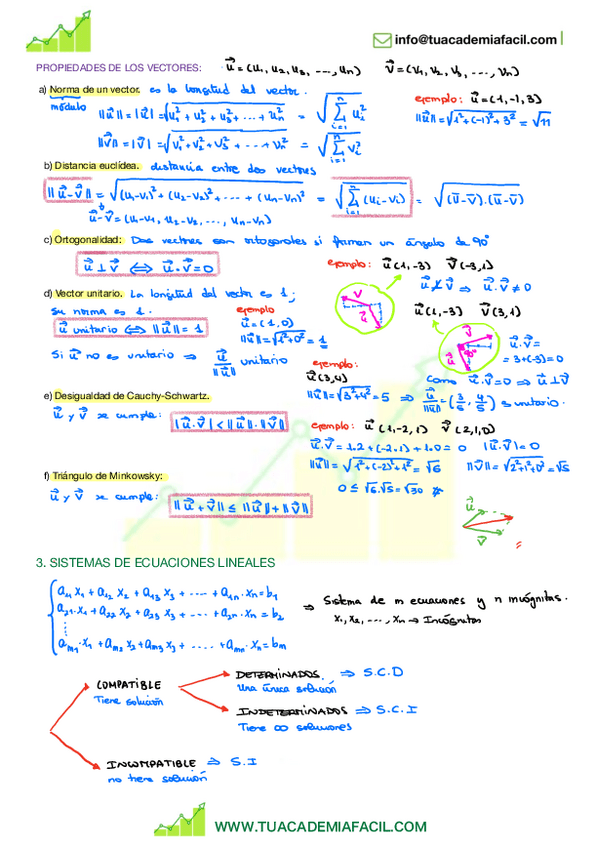 info@tuacademiafacil.com
PROPIEDADES DE LOS VECTORES: u⃗ = (u₁, u₂, u₃, ..., uₙ) v⃗ = (v₁, v₂, v₃, ..., vₙ)
a) Norma de un vector. es la longitud del vector.
módulo
ejemplo: u⃗ = (1, -1, 3)
||u⃗|| = |u⃗| = √(u₁² + u₂² + u₃² + ... + uₙ²) = √(Σᵢ₌₁ⁿ uᵢ²)
||u⃗|| = √(1² + (-1)² + 3²) = √11
||v⃗|| = |v⃗| = √(v₁² + v₂² + v₃² + ... + vₙ²) = √(Σᵢ₌₁ⁿ vᵢ²)
b) Distancia euclídea. distancia entre dos vectores
||u⃗ - v⃗|| = √((u₁-v₁)² + (u₂-v₂)² + ... + (uₙ-vₙ)²) = √(Σᵢ₌₁ⁿ (uᵢ-vᵢ)²) = √((u̅-v̅).(u̅-v̅))
u⃗-v⃗ = (u₁-v₁, u₂-v₂, ..., uₙ-vₙ)
c) Ortogonalidad: Dos vectores son ortogonales si forman un ángulo de 90°
u⃗ ⊥ v⃗ ⟺ u⃗.v⃗ = 0
ejemplo: u⃗(1,-3) v⃗(-3,1)
u⃗ ⊥̸ v⃗ ⇒ u⃗.v⃗ ≠ 0
v⃗
u⃗
d) Vector unitario. La longitud del vector es 1;
su norma es 1.
u⃗ unitario ⟺ ||u⃗|| = 1
ejemplo
u⃗ = (1,0)
||u⃗|| = √(1²+0²) = 1
u⃗(1,-3) v⃗(3,1)
v⃗
90°
u⃗
u⃗.v⃗ =
= 3+(-3) = 0
Si u⃗ no es unitario ⇒ u⃗/||u⃗|| unitario
Como u⃗.v⃗ = 0 ⇒ u⃗ ⊥ v⃗
ejemplo:
u⃗(3,4)
||u⃗|| = √(3²+4²) = 5 ⇒ u⃗/||u⃗|| = (3/5, 4/5) es unitario.
e) Desigualdad de Cauchy-Schwartz.
u⃗ y v⃗ se cumple: |u⃗.v⃗| < ||u⃗||.||v⃗||
ejemplo: u⃗(1,-2,1) v⃗(2,1,0)
u⃗.v⃗ = 1.2 + (-2.1) + 1.0 = 0 |u⃗.v⃗| = 0
||u⃗|| = √(1²+(-2)²+1²) = √6 ||v⃗|| = √(2²+1²+0²) = √5
0 ≤ √6.√5 = √30
f) Triángulo de Minkowsky:
u⃗ y v⃗ se cumple:
||u⃗+v⃗|| ≤ ||u⃗||+||v⃗||
u⃗
v⃗
3. SISTEMAS DE ECUACIONES LINEALES
a₁₁ x₁ + a₁₂ x₂ + a₁₃ x₃ + ... + a₁ₙ.xₙ = b₁
a₂₁.x₁ + a₂₂ x₂ + a₂₃ x₃ + ... + a₂ₙ.xₙ = b₂
⋮
aₘ₁.x₁ + aₘ₂ x₂ + aₘ₃ x₃ + ... + aₘₙ.xₙ = bₘ
⇒ Sistema de m ecuaciones y n incógnitas.
x₁, x₂, ..., xₙ → Incógnitas
COMPATIBLE
Tiene solución
DETERMINADOS ⇒ S.C.D
Una única solución
INDETERMINADOS ⇒ S.C.I
Tiene ∞ soluciones
INCOMPATIBLE ⇒ S.I
no tiene solución
WWW.TUACADEMIAFACIL.COM